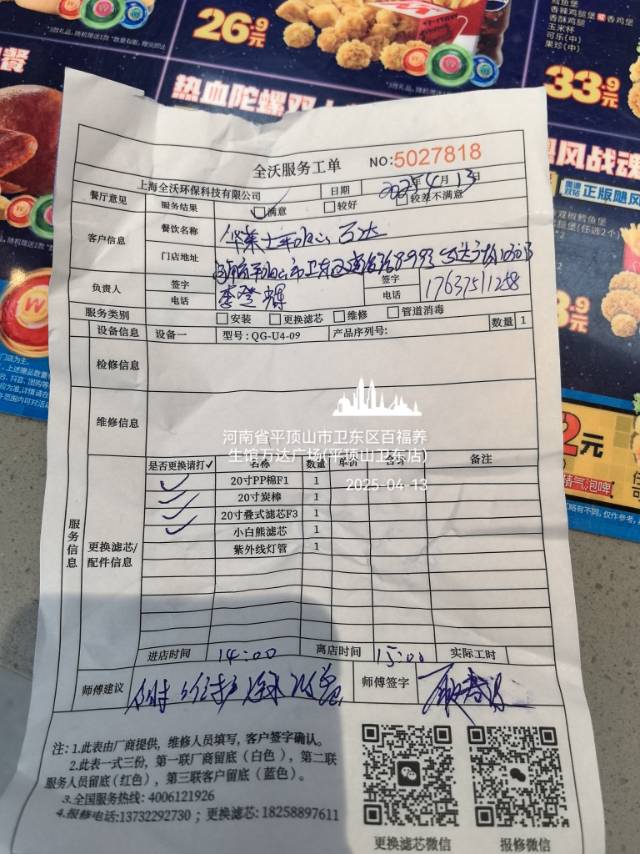 26.9元
热血陀螺双
香辣鸡腿堡
玉米杯
可乐(中)
果珍(中)
33.9元
飓风战魂
正版飓风
全沃服务工单
NO:5027818
上海全沃环保科技有限公司
日期
2025年4月13日
餐厅意见
服务结果
满意
较好
较差不满意
客户信息
餐饮名称
华莱士平顶山万达
门店地址
负责人
签字
电话
签字
电话
17637511258
服务类别
安装
更换滤芯
维修
管道消毒
设备信息
设备一
型号:QG-U4-09
产品序列号:
数量
1
检修信息
维修信息
河南省平顶山市卫东区百福养
生馆万达广场(平顶山卫东店)
2025-04-13
服务信息
更换滤芯/
配件信息
是否更换请打✓
名称
数量
单价
合计
备注
✓ 20寸PP棉F1 1
✓ 20寸炭棒 1
✓ 20寸叠式滤芯F3 1
✓ 小白熊滤芯 1
紫外线灯管 1
进店时间
14:00
离店时间
15:00
实际工时
师傅建议
师傅签字
注:1.此表由厂商提供,维修人员填写,客户签字确认。
2.此表一式三份,第一联厂商留底(白色),第二联
服务人员留底(红色),第三联客户留底(蓝色)。
3.全国服务热线:4006121926
4.报修电话:13732292730;更换滤芯:18258897611
更换滤芯微信
报修微信